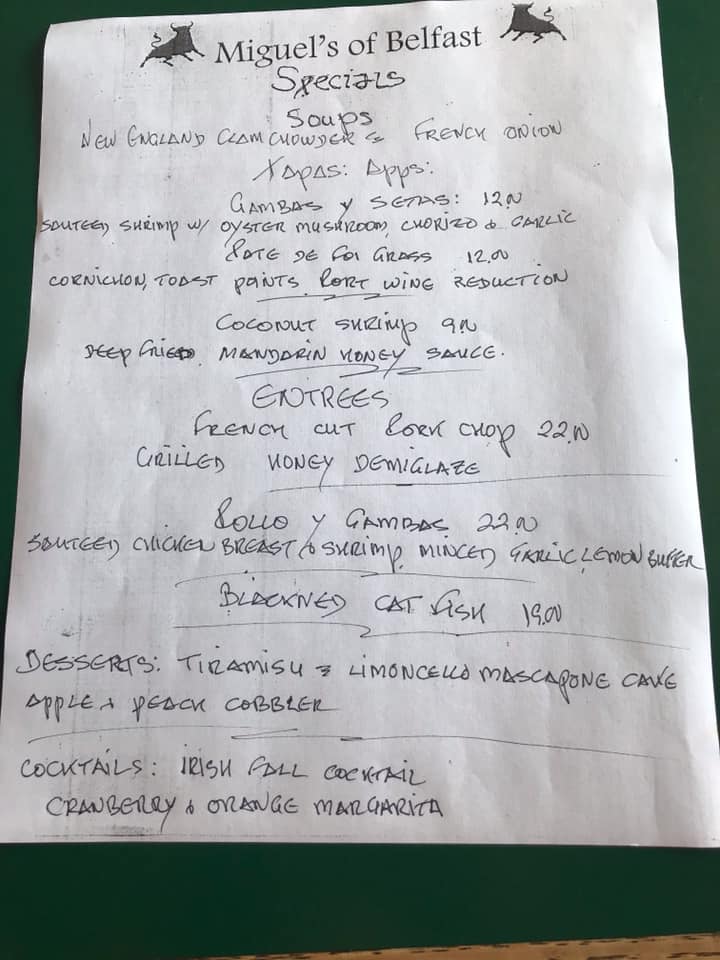 Miguel's of Belfast
Specials
Soups
NEW ENGLAND CLAM CHOWDER & FRENCH ONION
TAPAS: Apps:
GAMBAS y SETAS: 12.00
SAUTEED SHRIMP W/ OYSTER MUSHROOM, CHORIZO & GARLIC
PATE DE FOI GRASS 12.00
CORNICHON, TOAST POINTS, PORT WINE REDUCTION
COCONUT SHRIMP 9.00
DEEP FRIED, MANDARIN HONEY SAUCE.
ENTREES
FRENCH CUT PORK CHOP 22.00
GRILLED HONEY DEMIGLAZE
POLLO Y GAMBAS 22.00
SAUTEED CHICKEN BREAST & SHRIMP, MINCED GARLIC, LEMON BUTTER
BLACKNED CAT FISH 19.00
DESSERTS: TIRAMISU & LIMONCELLO MASCAPONE CAKE
APPLE & PEACH COBBLER
COCKTAILS: IRISH FALL COCKTAIL
CRANBERRY & ORANGE MARGARITA